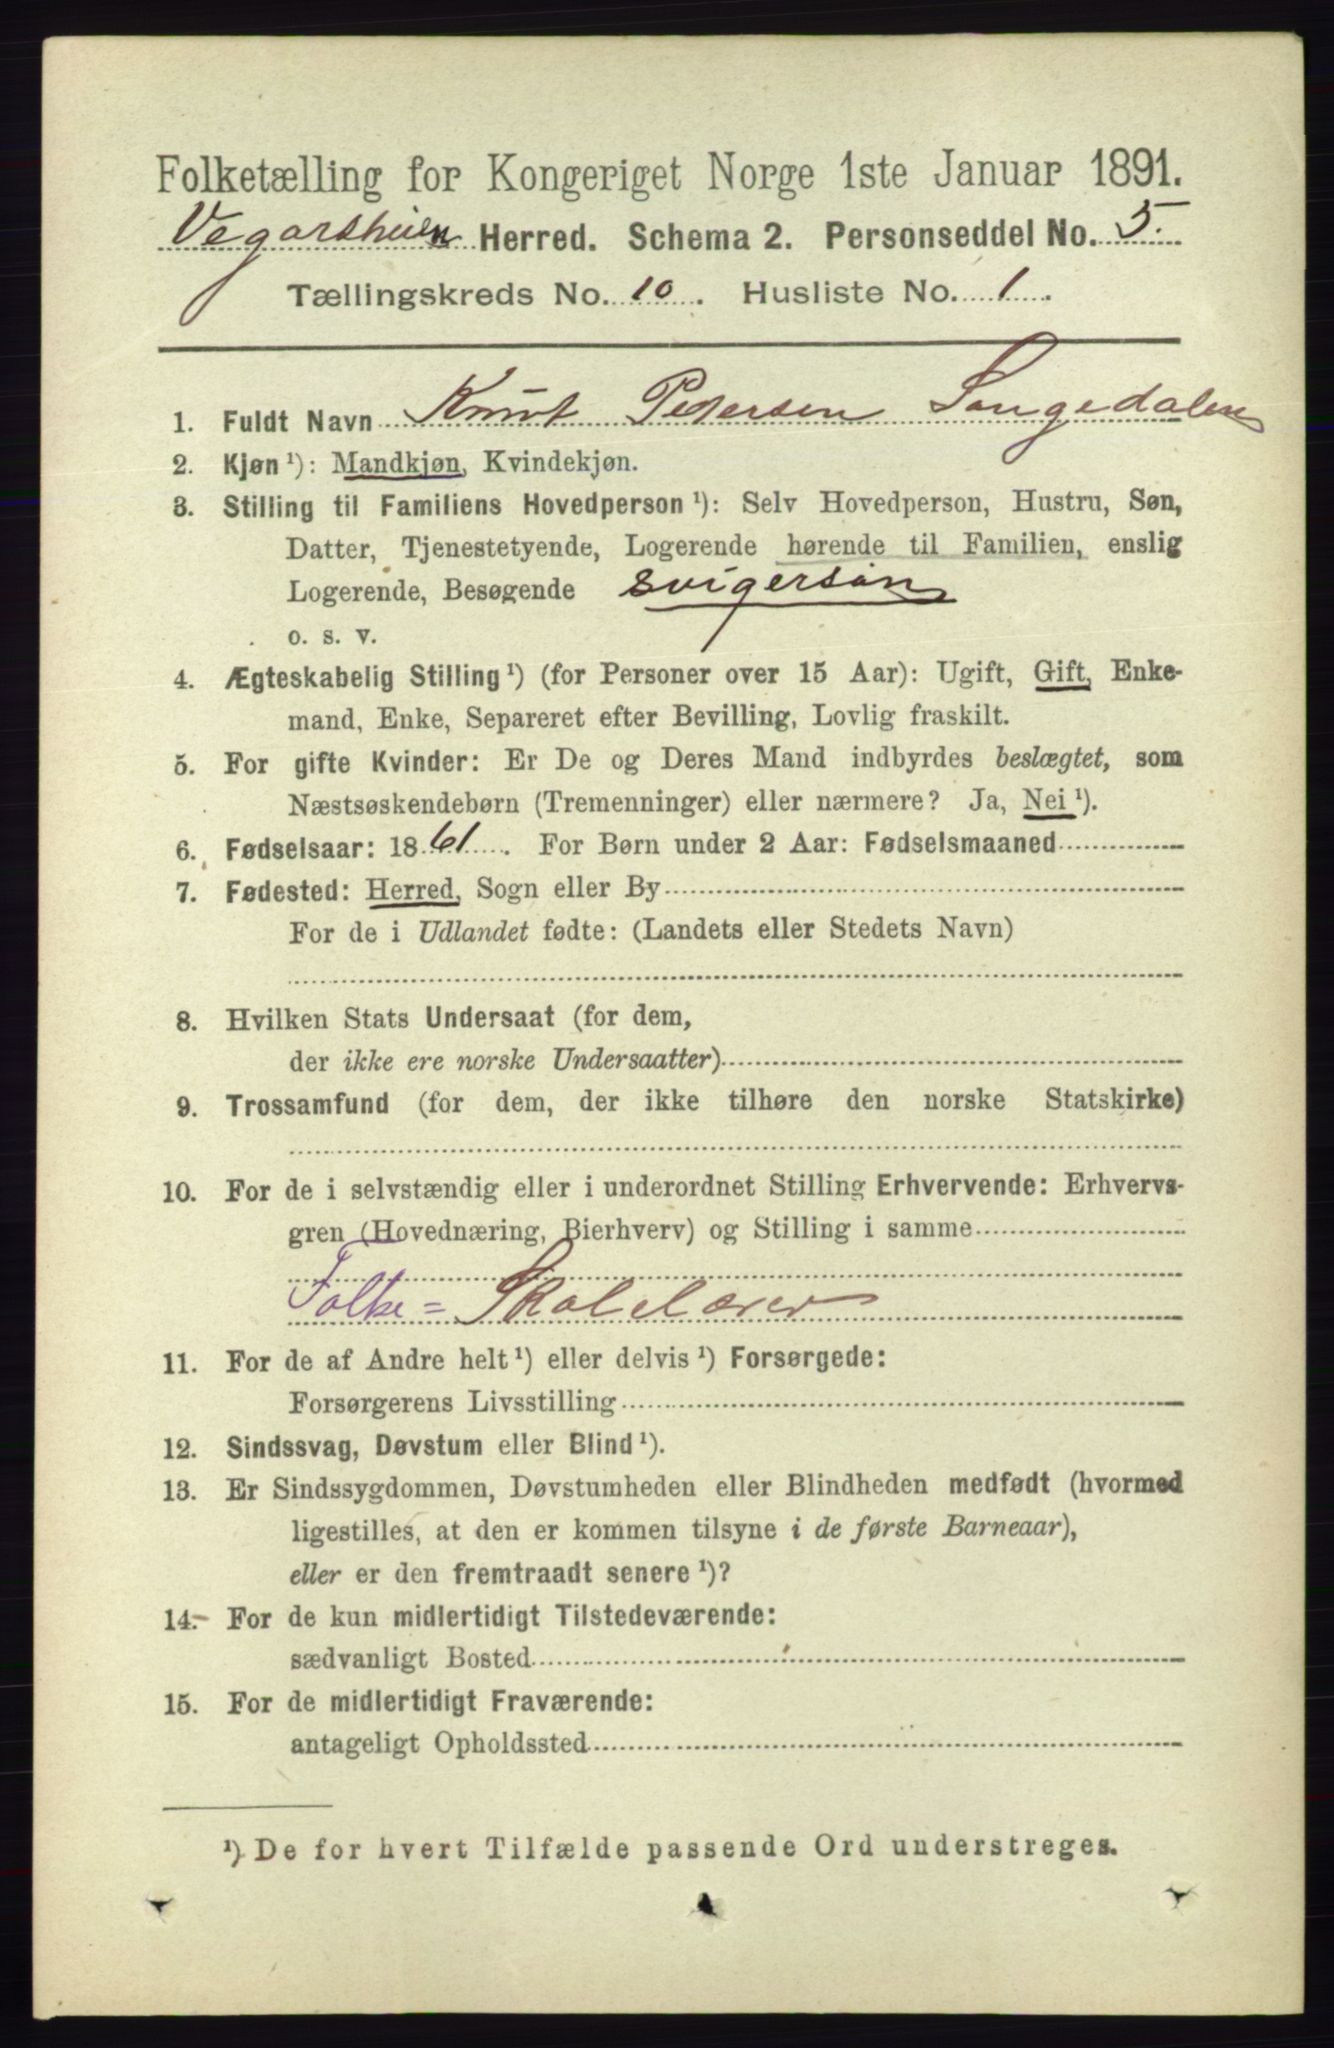 Folketælling for Kongeriget Norge 1ste Januar 1891.
Vegarsheien Herred. Schema 2. Personseddel No. 5.
Tællingskreds No. 10. Husliste No. 1.
1. Fuldt Navn Knut Pedersen Songedalen
2. Kjøn¹): Mandkjøn, Kvindekjøn.
3. Stilling til Familiens Hovedperson¹): Selv Hovedperson, Hustru, Søn,
Datter, Tjenestetyende, Logerende hørende til Familien, enslig
Logerende, Besøgende svigersøn
o. s. v.
4. Ægteskabelig Stilling¹) (for Personer over 15 Aar): Ugift, Gift, Enke-
mand, Enke, Separeret efter Bevilling, Lovlig fraskilt.
5. For gifte Kvinder: Er De og Deres Mand indbyrdes beslægtet, som
Næstsøskendebørn (Tremenninger) eller nærmere? Ja, Nei¹).
6. Fødselsaar: 1861. For Børn under 2 Aar: Fødselsmaaned
7. Fødested: Herred, Sogn eller By
For de i Udlandet fødte: (Landets eller Stedets Navn)
8. Hvilken Stats Undersaat (for dem,
der ikke ere norske Undersaatter)
9. Trossamfund (for dem, der ikke tilhøre den norske Statskirke)
10. For de i selvstændig eller i underordnet Stilling Erhvervende: Erhvervs-
gren (Hovednæring, Bierhverv) og Stilling i samme
Folke= Skolelærer
11. For de af Andre helt¹) eller delvis¹) Forsørgede:
Forsørgerens Livsstilling
12. Sindssvag, Døvstum eller Blind¹).
13. Er Sindssygdommen, Døvstumheden eller Blindheden medfødt (hvormed
ligestilles, at den er kommen tilsyne i de første Barneaar),
eller er den fremtraadt senere¹)?
14. For de kun midlertidigt Tilstedeværende:
sædvanligt Bosted
15. For de midlertidigt Fraværende:
antageligt Opholdssted
¹) De for hvert Tilfælde passende Ord understreges.